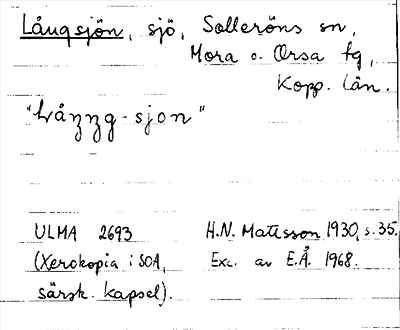 Långsjön, sjö, Solleröns sn,
Mora o. Orsa tg,
Kopp. län.
"Låŋŋg-sjon"
ULMA 2693
(Xerokopia i SOA,
särsk. kapsel).
H.N. Matsson 1930, s. 35.
Exc. av E.Å. 1968.